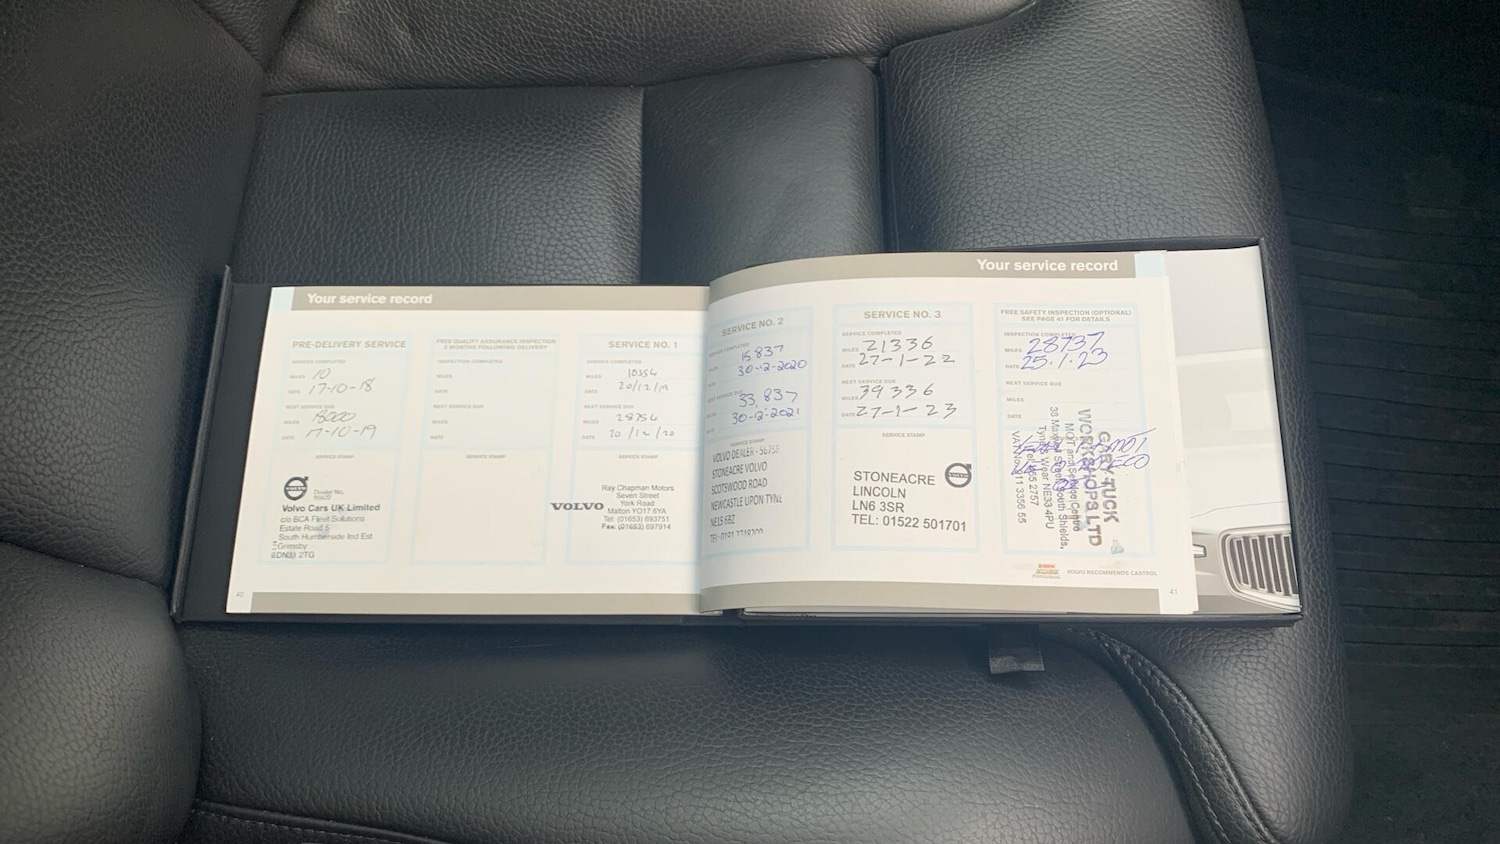 Your service record
PRE-DELIVERY SERVICE
SERVICE COMPLETED
MILES 10
DATE 17-10-18
NEXT SERVICE DUE
MILES 18000
DATE 17-10-19
SERVICE STAMP
VOLVO
Dealer No.
Volvo Cars UK Limited
c/o BCA Fleet Solutions
Estate Road 5
South Humberside Ind Est
Grimsby
DN31 2TG
40
FREE QUALITY ASSURANCE INSPECTION
3 MONTHS FOLLOWING DELIVERY
INSPECTION COMPLETED
MILES
DATE
NEXT SERVICE DUE
MILES
DATE
SERVICE STAMP
SERVICE NO. 1
SERVICE COMPLETED
MILES 10356
DATE 20/12/19
NEXT SERVICE DUE
MILES 28356
DATE 20/12/20
SERVICE STAMP
VOLVO
Ray Chapman Motors
Seven Street
York Road
Malton YO17 6YA
Tel: (01653) 693751
Fax: (01653) 697914
Your service record
SERVICE NO. 2
SERVICE COMPLETED
MILES 15837
DATE 30-12-2020
NEXT SERVICE DUE
MILES 33,837
DATE 30-12-2021
SERVICE STAMP
VOLVO DEALER -
STONEACRE VOLVO
SCOTSWOOD ROAD
NEWCASTLE UPON TYNE
NE15 6BZ
SERVICE NO. 3
SERVICE COMPLETED
MILES 21336
DATE 27-1-22
NEXT SERVICE DUE
MILES 39336
DATE 27-1-23
SERVICE STAMP
STONEACRE
LINCOLN
LN6 3SR
TEL: 01522 501701
VOLVO
FREE SAFETY INSPECTION (OPTIONAL)
SEE PAGE 41 FOR DETAILS
INSPECTION COMPLETED
MILES 28737
DATE 25.1.23
NEXT SERVICE DUE
MILES
DATE
GARY TUCK
WORKSHOPS LTD
MOT and Service Centre
South Shields,
Tyne Wear NE33 4PU
VOLVO RECOMMENDS CASTROL
41